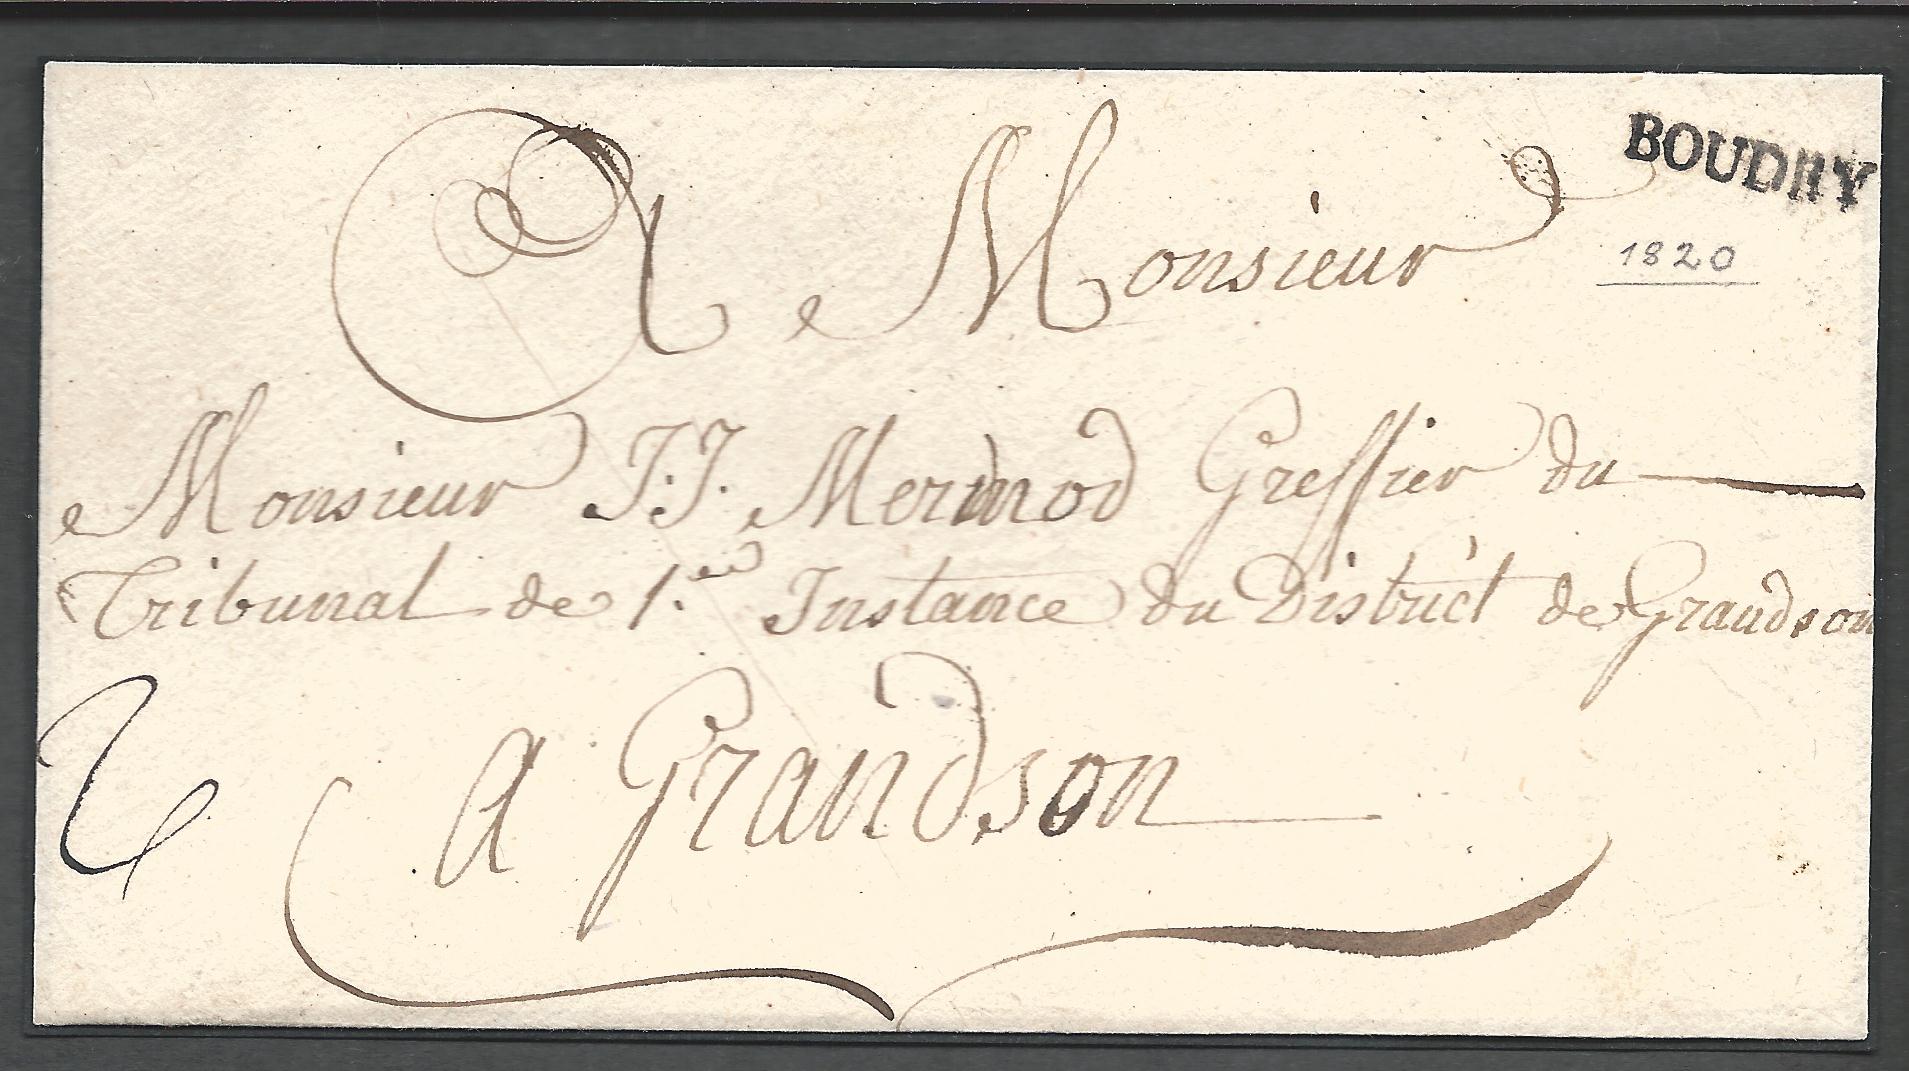 BOUDRY
1820
A Monsieur
Monsieur J:J. Mermod Greffier du
Tribunal de 1.ere Instance du District de Grandson
A Grandson